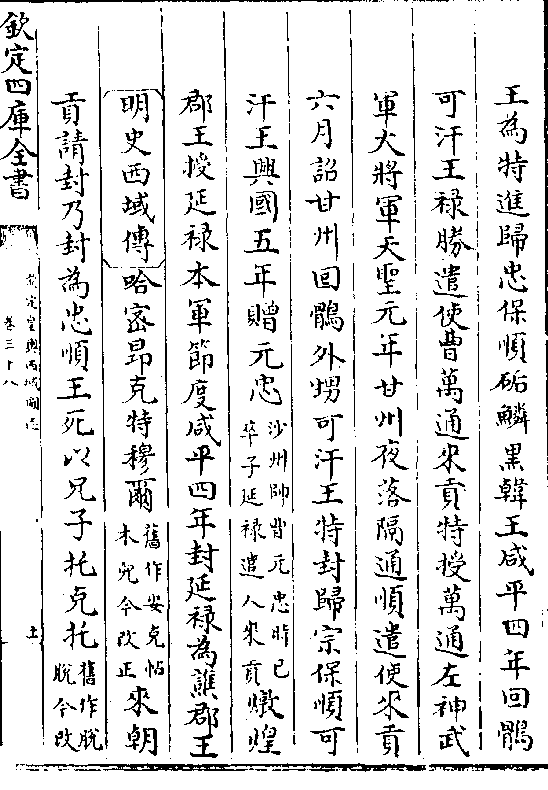 王為特進歸忠保順䂬鱗黒韓王咸平四年回鶻
可汗王禄勝遣使曹萬通來貢特授萬通左神武
軍大將軍天聖元年甘州夜落隔通順遣使來貢
六月詔甘州回鶻外甥可汗王特封歸宗保順可
汗王興國五年贈元忠沙州帥曹元忠時已卒子延禄遣人來貢燉煌
郡王授延禄本軍節度咸平四年封延禄為譙郡王
明史西域傳哈密昂克特穆爾舊作安克帖木兒今改正來朝
貢請封乃封為忠順王死以兄子托克托舊作脱脱今改
欽定四庫全書
欽定皇輿西域圖志
卷三十八
十